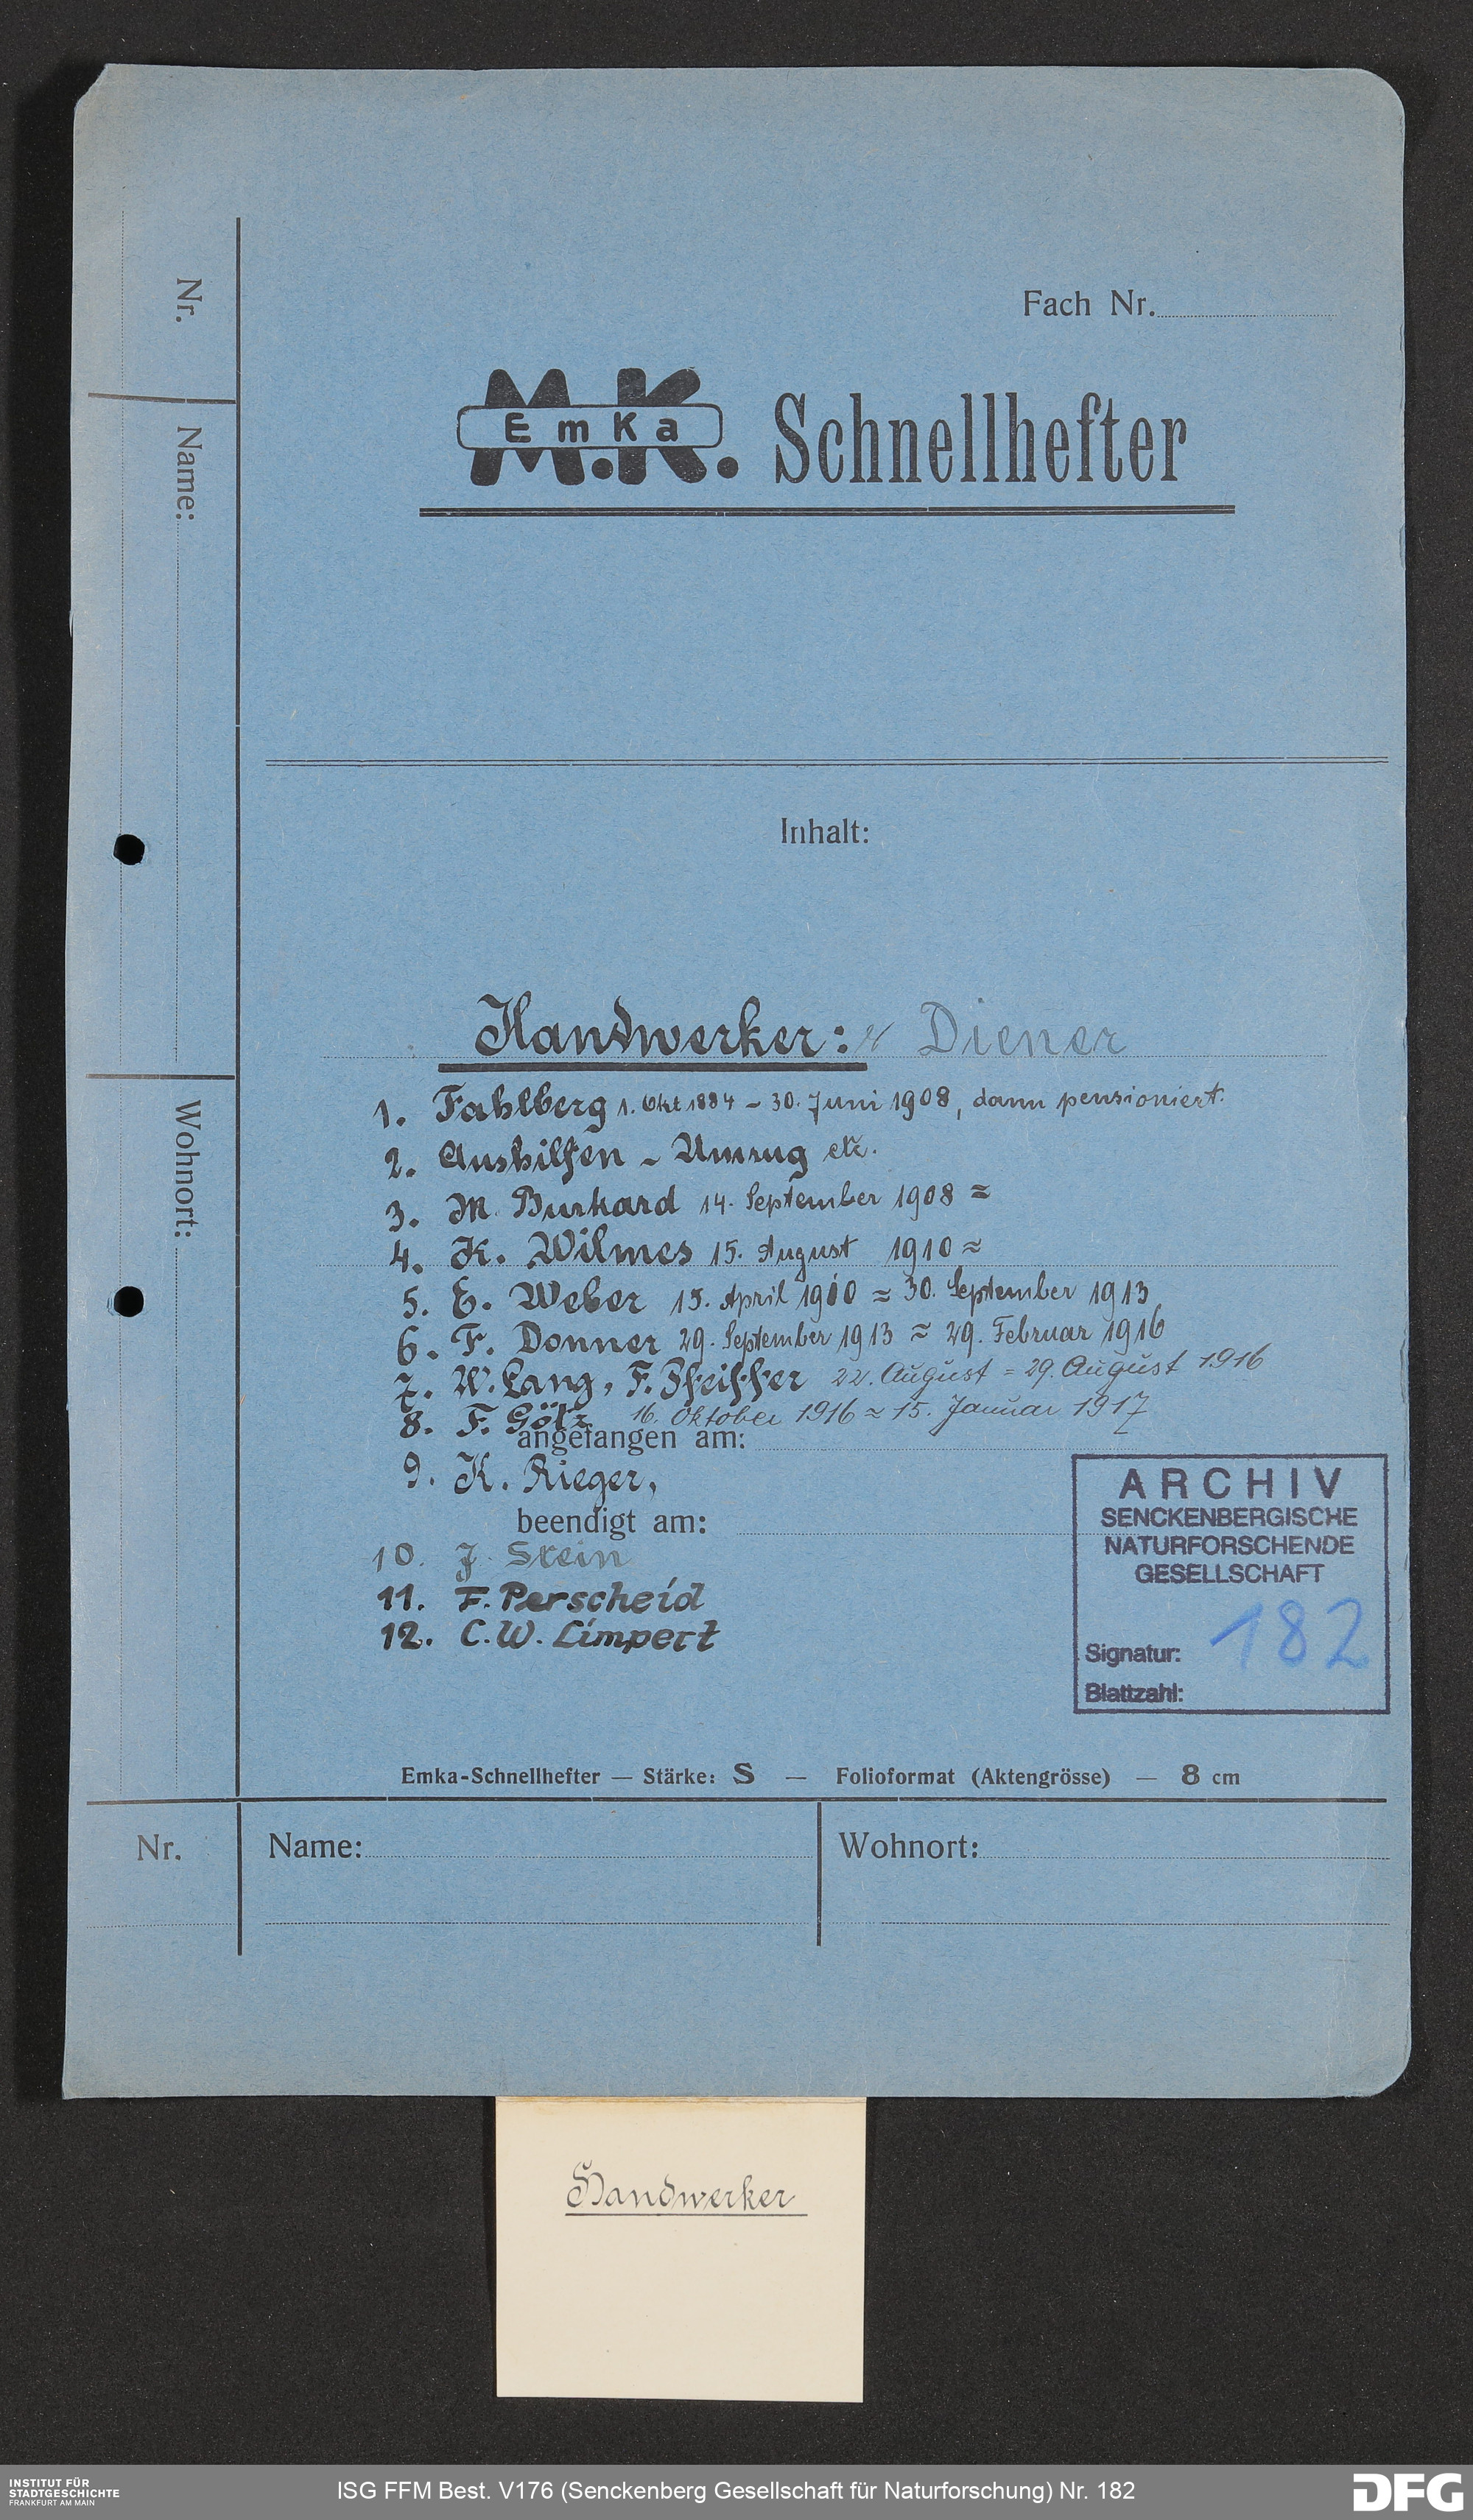 Fach Nr.
M.K. EmKa Schnellhefter
Nr.
Name:
Wohnort:
Inhalt:
Handwerker: Diener
1. Fahlberg 1. Okt 1884 - 30. Juni 1908, dann pensioniert.
2. Aushilfen - Umzug etc.
3. M. Burkard 14. September 1908 =
4. K. Wilmes 15. August 1910 =
5. E. Weber 15. April 1910 = 30. September 1913
6. F. Donner 29. September 1913 = 29. Februar 1916
7. W. Lang, F. Pfeiffer 22. August = 29. August 1916
8. F. Götz 16. Oktober 1916 = 15. Januar 1917
angefangen am:
9. K. Rieger,
beendigt am:
10. J. Stein
11. F. Perscheid
12. C. W. Limpert
ARCHIV
SENCKENBERGISCHE
NATURFORSCHENDE
GESELLSCHAFT
Signatur: 182
Blattzahl:
Emka-Schnellhefter — Stärke: S — Folioformat (Aktengrösse) — 8 cm
Nr. Name: Wohnort:
Handwerker
INSTITUT FÜR
STADTGESCHICHTE
FRANKFURT AM MAIN
ISG FFM Best. V176 (Senckenberg Gesellschaft für Naturforschung) Nr. 182
DFG